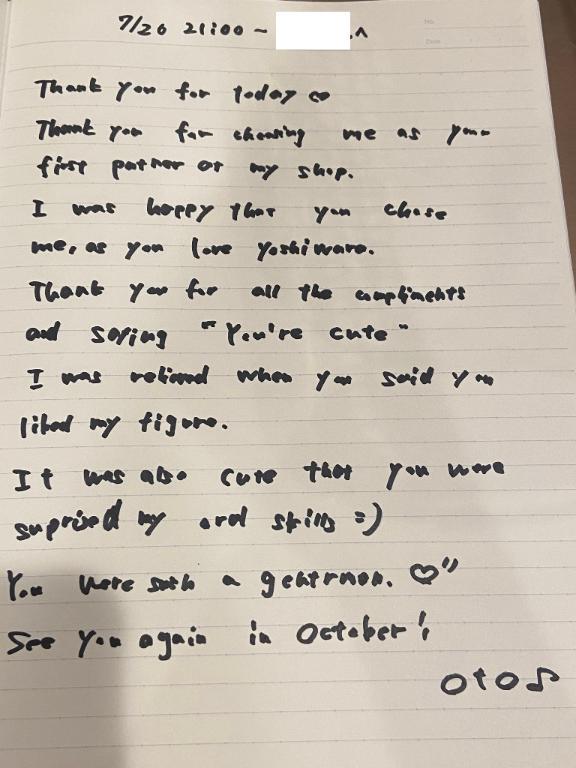 7/26 21:00 ~ .^
No.
Date
Thank you for today ♡
Thank you for choosing me as your
first patner at my shop.
I was happy that you chose
me, as you love Yoshiwara.
Thank you for all the compliments
and saying "You're cute"
I was relieved when you said you
liked my figure.
It was also cute that you were
suprised my oral skills =)
You were such a gentrman. ♡"
See you again in October!
oto♪